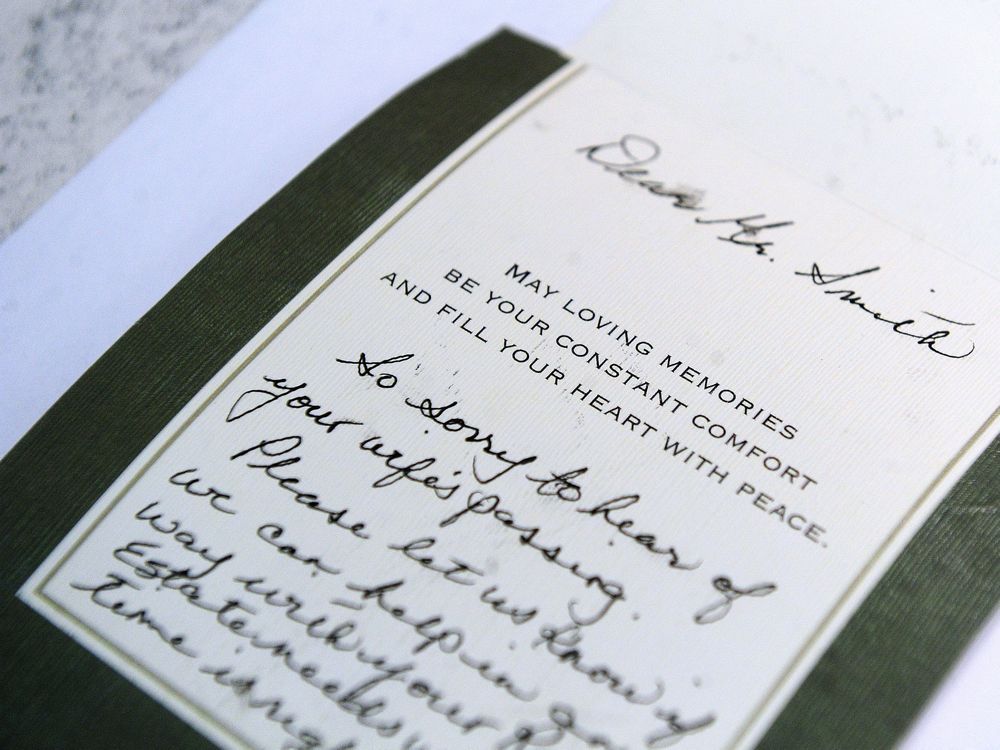 Dear Mr. Smith
MAY LOVING MEMORIES
BE YOUR CONSTANT COMFORT
AND FILL YOUR HEART WITH PEACE.
So Sorry to hear of
your wife's passing.
Please let us know if
we can help in any
way with your
Estate needs
time